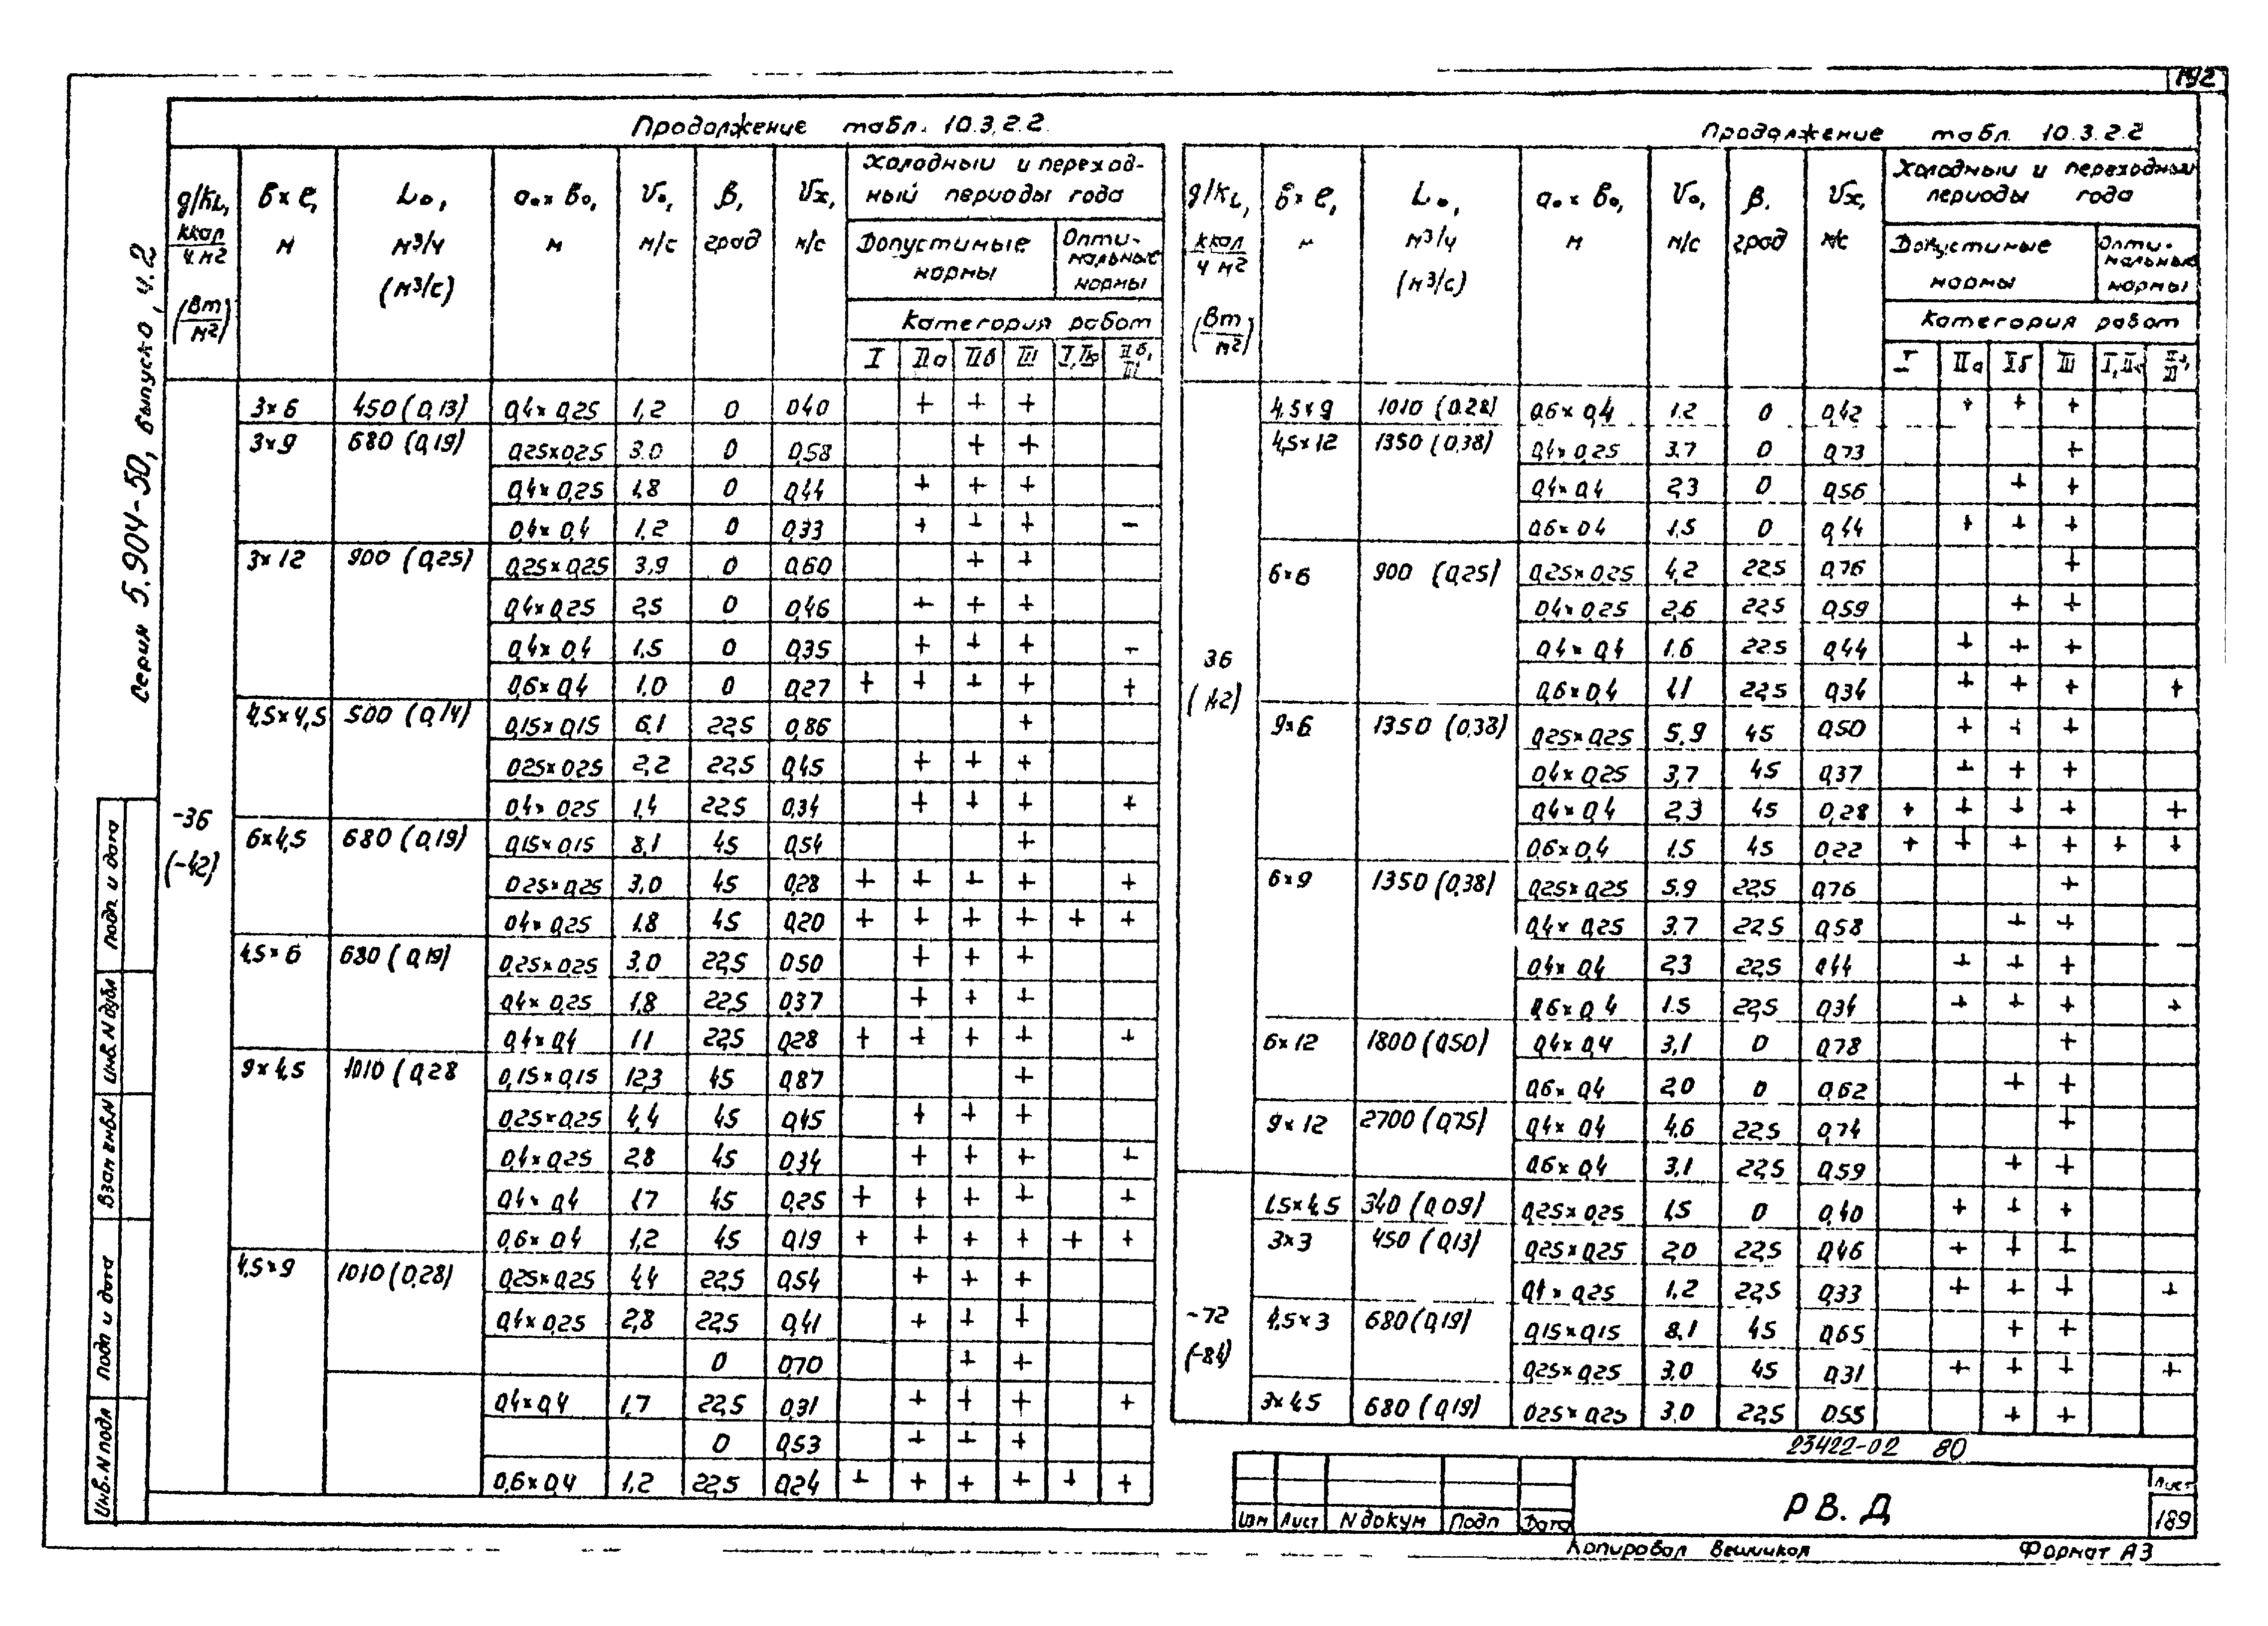 192
Серия 5.904-50, выпуск 0, ч.2
Продолжение табл. 10.3.2.2.
g/KL, ккал/ч.м2 (Вт/м2) | в×ℓ, м | L₀, м3/ч (м3/с) | a₀×b₀, м | V₀, м/с | β, град | Vx, м/с | Холодный и переходный периоды года
Допустимые нормы | Оптимальные нормы
Категория работ
I | IIа | IIб | III | I, IIа | IIб, III
-36 (-42)
3×6 | 450 (0,13) | 0,4×0,25 | 1,2 | 0 | 0,40 | | + | + | + | |
3×9 | 680 (0,19) | 0,25×0,25 | 3.0 | 0 | 0,58 | | | + | + | |
0,4×0,25 | 1,8 | 0 | 0,44 | | + | + | + | |
0,4×0,4 | 1,2 | 0 | 0,33 | | + | + | + | | –
3×12 | 900 (0,25) | 0,25×0,25 | 3,9 | 0 | 0,60 | | | + | + | |
0,4×0,25 | 2,5 | 0 | 0,46 | | + | + | + | |
0,4×0,4 | 1,5 | 0 | 0,35 | | + | + | + | | –
0,6×0,4 | 1,0 | 0 | 0,27 | + | + | + | + | | +
4,5×4,5 | 500 (0,14) | 0,15×0,15 | 6.1 | 22,5 | 0,86 | | | | + | |
0,25×0,25 | 2,2 | 22,5 | 0,45 | | + | + | + | |
0,4×0,25 | 1,4 | 22,5 | 0,34 | | + | + | + | | +
6×4,5 | 680 (0,19) | 0,15×0,15 | 8,1 | 45 | 0,54 | | | | + | |
0,25×0,25 | 3,0 | 45 | 0,28 | + | + | + | + | | +
0,4×0,25 | 1.8 | 45 | 0,20 | + | + | + | + | + | +
4,5×6 | 680 (0,19) | 0,25×0,25 | 3,0 | 22,5 | 0,50 | | + | + | + | |
0,4×0,25 | 1,8 | 22,5 | 0,37 | | + | + | + | |
0,4×0,4 | 1,1 | 22,5 | 0,28 | + | + | + | + | | +
9×4,5 | 1010 (0,28 | 0,15×0,15 | 12,3 | 45 | 0,87 | | | | + | |
0,25×0,25 | 4,4 | 45 | 0,45 | | + | + | + | |
0,4×0,25 | 2,8 | 45 | 0,34 | | + | + | + | | +
0,4×0,4 | 1,7 | 45 | 0,25 | + | + | + | + | | +
0,6×0,4 | 1,2 | 45 | 0,19 | + | + | + | + | + | +
4,5×9 | 1010 (0,28) | 0,25×0,25 | 4,4 | 22,5 | 0,54 | | + | + | + | |
0,4×0,25 | 2,8 | 22,5 | 0,41 | | + | + | + | |
0 | 0,70 | | | + | + | |
0,4×0,4 | 1,7 | 22,5 | 0,31 | | + | + | + | | +
0 | 0,53 | | + | + | + | |
0,6×0,4 | 1,2 | 22,5 | 0,24 | + | + | + | + | + | +
Продолжение табл. 10.3.2.2
g/KL, ккал/ч м2 (Вт/м2) | в×ℓ, м | L₀, м3/ч (м3/с) | a₀×b₀, м | V₀, м/с | β, град | Vx, м/с | Холодный и переходный периоды года
Допустимые нормы | Оптимальные нормы
Категория работ
I | IIа | IIб | III | I, IIа | IIб, III
36 (42)
4,5×9 | 1010 (0.28) | 0,6×0,4 | 1.2 | 0 | 0,42 | | + | + | + | |
4,5×12 | 1350 (0,38) | 0,4×0,25 | 3.7 | 0 | 0,73 | | | | + | |
0,4×0,4 | 2,3 | 0 | 0,56 | | | + | + | |
0,6×0,4 | 1.5 | 0 | 0,44 | | + | + | + | |
6×6 | 900 (0,25) | 0,25×0,25 | 4,2 | 22,5 | 0,76 | | | | + | |
0,4×0,25 | 2,6 | 22,5 | 0,59 | | | + | + | |
0,4×0,4 | 1.6 | 22,5 | 0,44 | | + | + | + | |
0,6×0,4 | 1,1 | 22,5 | 0,34 | | + | + | + | | +
9×6 | 1350 (0,38) | 0,25×0,25 | 5.9 | 45 | 0,50 | | + | + | + | |
0,4×0,25 | 3,7 | 45 | 0,37 | | + | + | + | |
0,4×0,4 | 2,3 | 45 | 0,28 | + | + | + | + | | +
0,6×0,4 | 1.5 | 45 | 0,22 | + | + | + | + | + | +
6×9 | 1350 (0,38) | 0,25×0,25 | 5.9 | 22,5 | 0,76 | | | | + | |
0,4×0,25 | 3.7 | 22,5 | 0,58 | | | + | + | |
0,4×0,4 | 2,3 | 22,5 | 0,44 | | + | + | + | |
0,6×0,4 | 1.5 | 22,5 | 0,34 | | + | + | + | | +
6×12 | 1800 (0,50) | 0,4×0,4 | 3,1 | 0 | 0,78 | | | | + | |
0,6×0,4 | 2,0 | 0 | 0,62 | | | + | + | |
9×12 | 2700 (0,75) | 0,4×0,4 | 4.6 | 22,5 | 0,74 | | | | + | |
0,6×0,4 | 3,1 | 22,5 | 0,59 | | | + | + | |
-72 (-84)
1,5×4,5 | 340 (0,09) | 0,25×0,25 | 1,5 | 0 | 0,40 | | + | + | + | |
3×3 | 450 (0,13) | 0,25×0,25 | 2,0 | 22,5 | 0,46 | | + | + | + | |
0,4×0,25 | 1,2 | 22,5 | 0,33 | | + | + | + | | +
4,5×3 | 680 (0,19) | 0,15×0,15 | 8,1 | 45 | 0,65 | | | + | + | |
0,25×0,25 | 3.0 | 45 | 0,31 | | + | + | + | | +
3×4,5 | 680 (0,19) | 0,25×0,25 | 3,0 | 22,5 | 0,55 | | | + | + | |
23422-02 80
Изм Лист N докум Подп Дата
РВ.Д
Лист
189
Копировал
Формат А3
Инв. N подл
Подп и дата
Взам инв.N
Инв. N дубл
Подп и дата